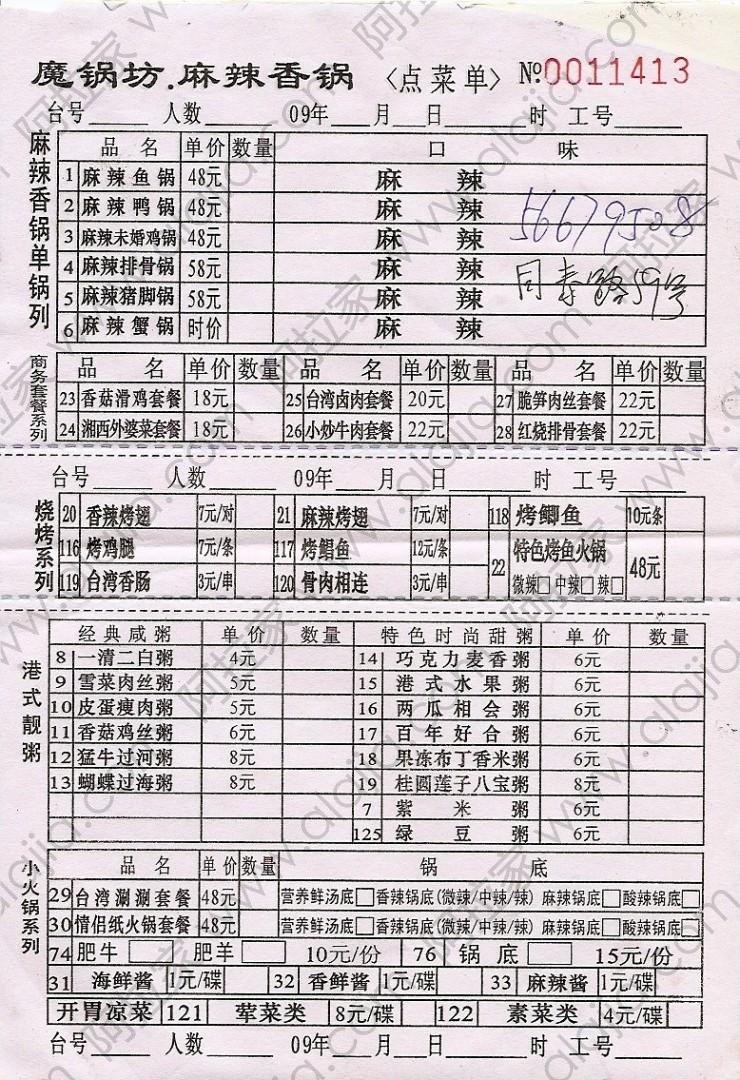 魔锅坊.麻辣香锅 〈点菜单〉 №0011413
台号 人数 09年 月 日 时 工号
麻辣香锅单锅列
品名 单价 数量 口味
1 麻辣鱼锅 48元 麻辣
2 麻辣鸭锅 48元 麻辣
3 麻辣未婚鸡锅 48元 麻辣
4 麻辣排骨锅 58元 麻辣
5 麻辣猪脚锅 58元 麻辣
6 麻辣蟹锅 时价 麻辣
56679508
同泰路59号
商务套餐系列
品名 单价 数量 品名 单价 数量 品名 单价 数量
23 香菇滑鸡套餐 18元 25 台湾卤肉套餐 20元 27 脆笋肉丝套餐 22元
24 湘西外婆菜套餐 18元 26 小炒牛肉套餐 22元 28 红烧排骨套餐 22元
台号 人数 09年 月 日 时 工号
烧烤系列
20 香辣烤翅 7元/对 21 麻辣烤翅 7元/对 118 烤鲫鱼 10元条
116 烤鸡腿 7元/条 117 烤鲳鱼 12元/条 22 特色烤鱼火锅 48元
119 台湾香肠 3元/串 120 骨肉相连 3元/串 微辣□中辣□辣□
港式靓粥
经典咸粥 单价 数量 特色时尚甜粥 单价 数量
8 一清二白粥 4元 14 巧克力麦香粥 6元
9 雪菜肉丝粥 5元 15 港式水果粥 6元
10 皮蛋瘦肉粥 5元 16 两瓜相会粥 6元
11 香菇鸡丝粥 6元 17 百年好合粥 6元
12 猛牛过河粥 8元 18 果冻布丁香米粥 6元
13 蝴蝶过海粥 8元 19 桂圆莲子八宝粥 8元
7 紫米粥 6元
125 绿豆粥 6元
小火锅系列
品名 单价 数量 锅底
29 台湾涮涮套餐 48元 营养鲜汤底□香辣锅底(微辣/中辣/辣) 麻辣锅底□酸辣锅底□
30 情侣纸火锅套餐 48元 营养鲜汤底□香辣锅底(微辣/中辣/辣) 麻辣锅底□酸辣锅底□
74 肥牛 肥羊 10元/份 76 锅底 15元/份
31 海鲜酱 1元/碟 32 香鲜酱 1元/碟 33 麻辣酱 1元/碟
开胃凉菜 121 荤菜类 8元/碟 122 素菜类 4元/碟
台号 人数 09年 月 日 时 工号
阿拉家 www.alajia.com